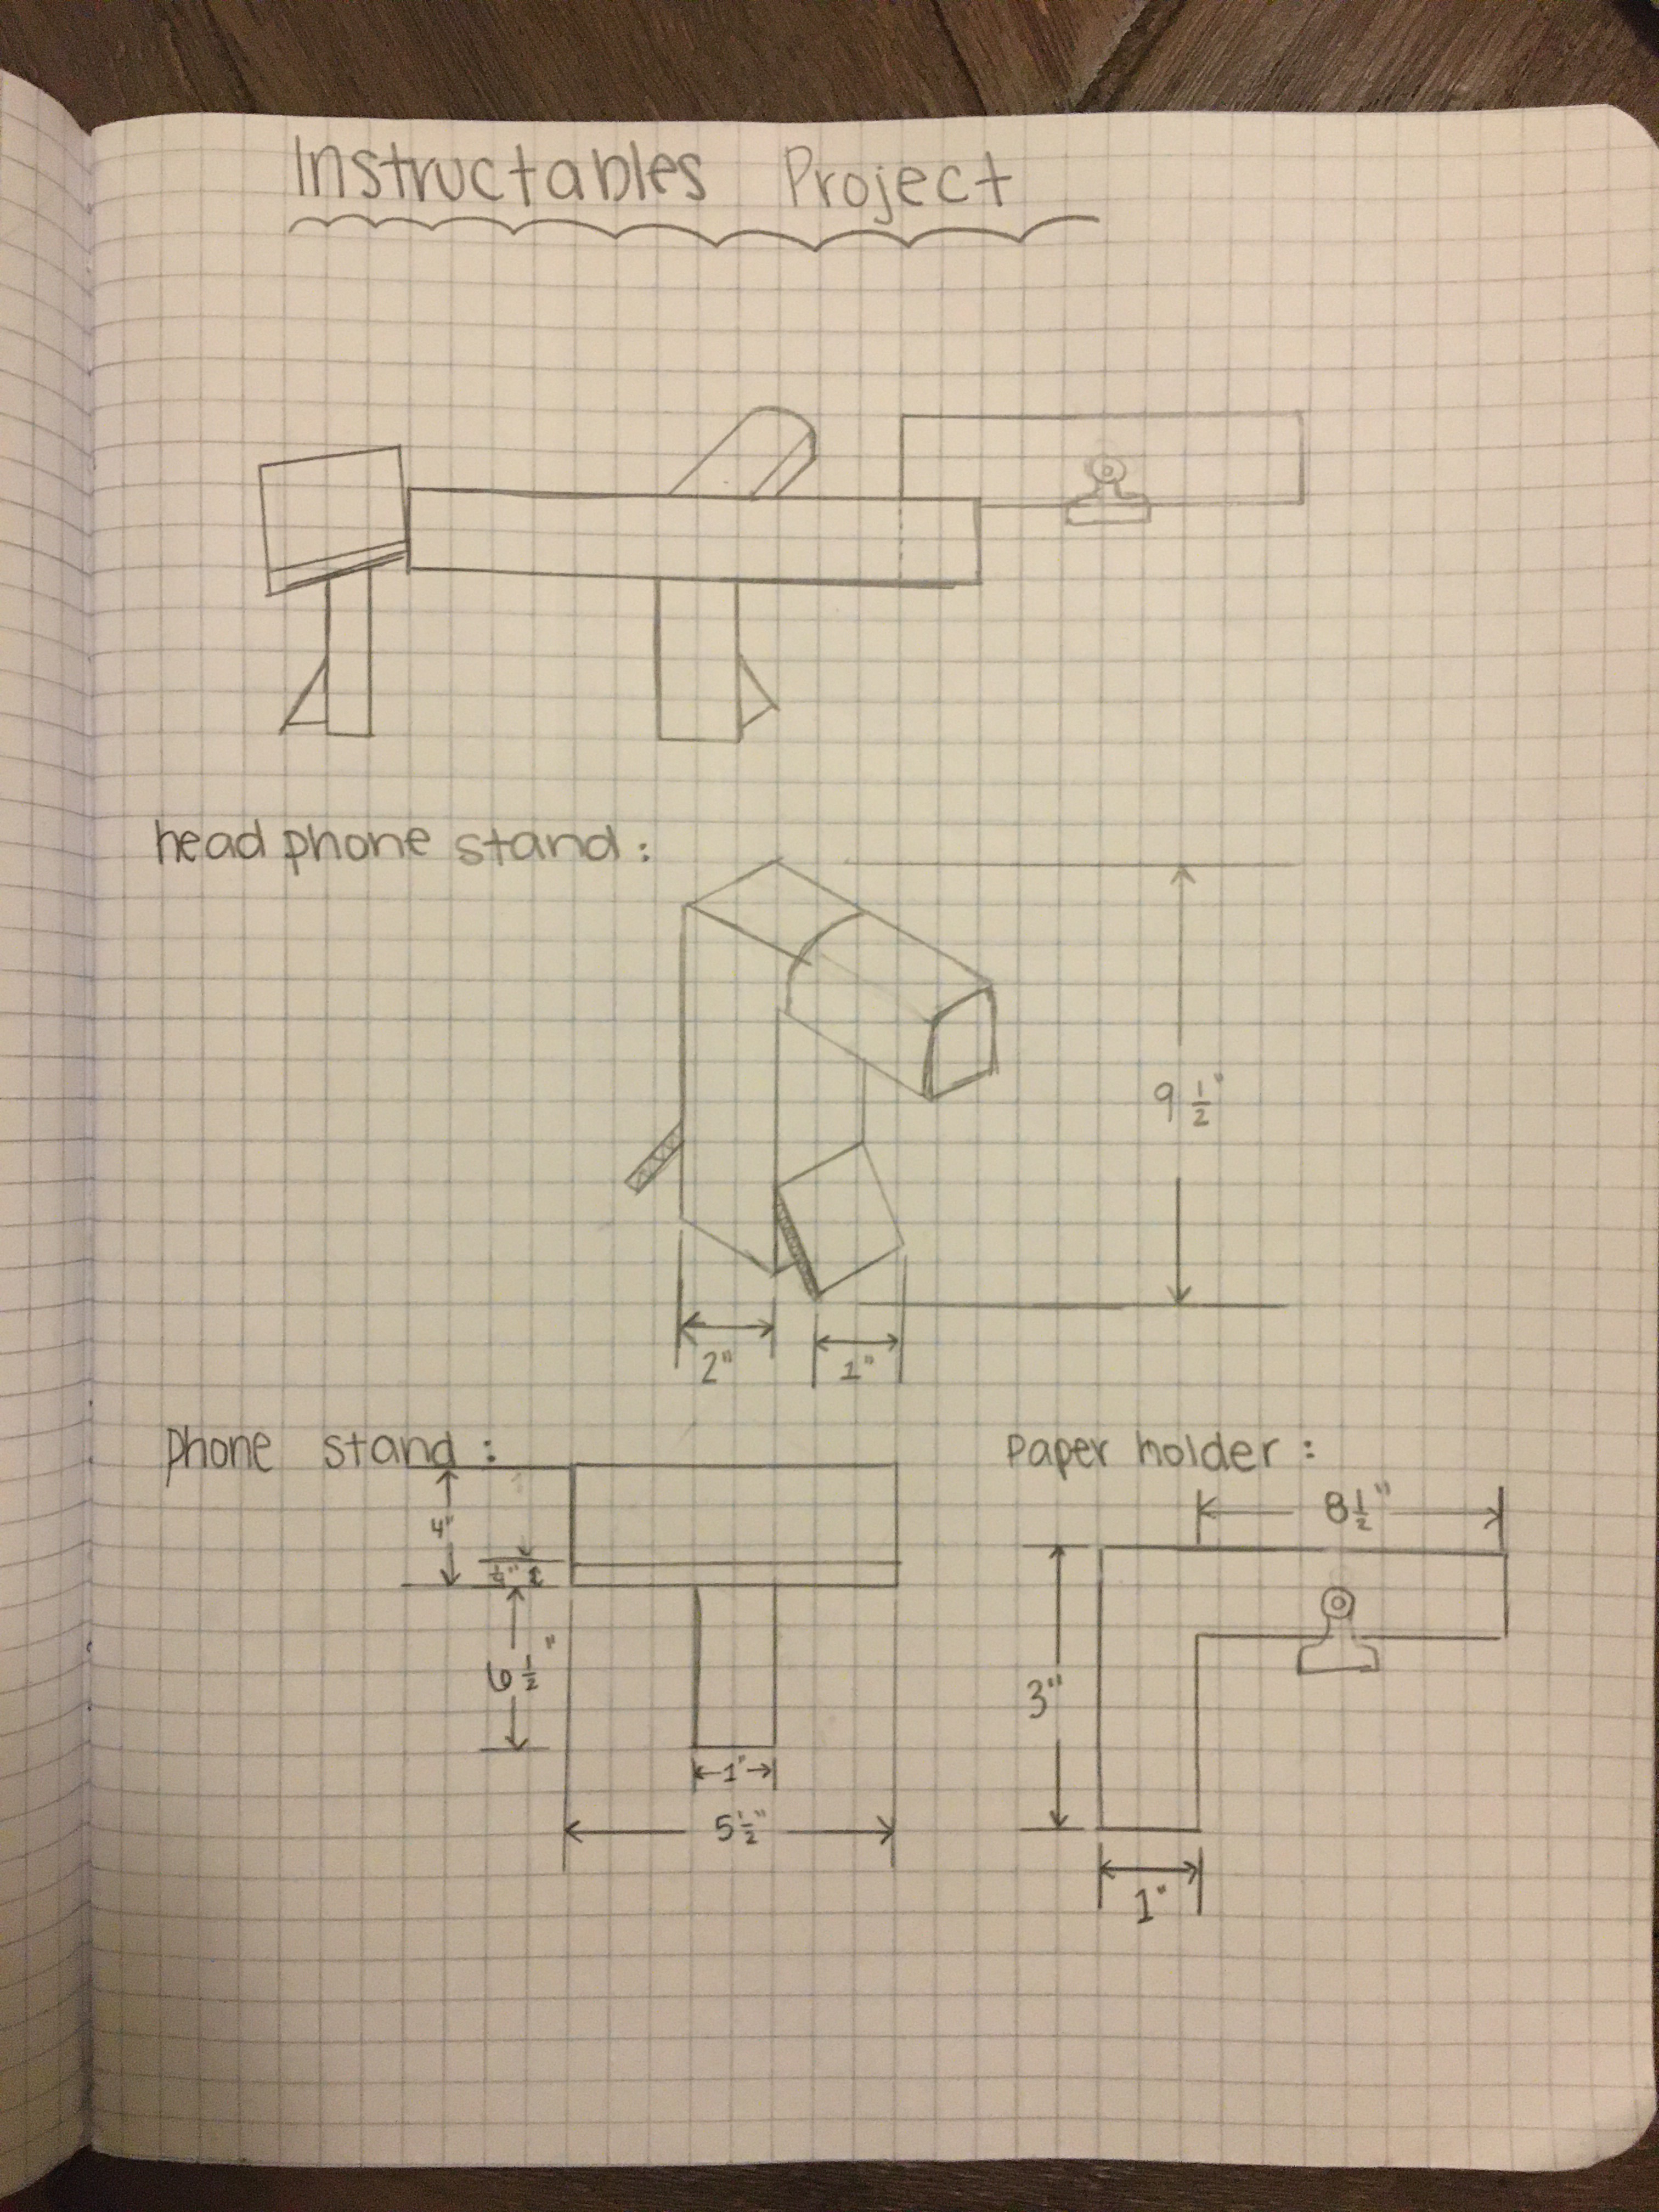 Instructables Project
head phone stand:
9 1/2"
2"
1"
phone stand:
4"
6 1/2"
1"
5 1/2"
Paper holder:
8 1/2"
3"
1"